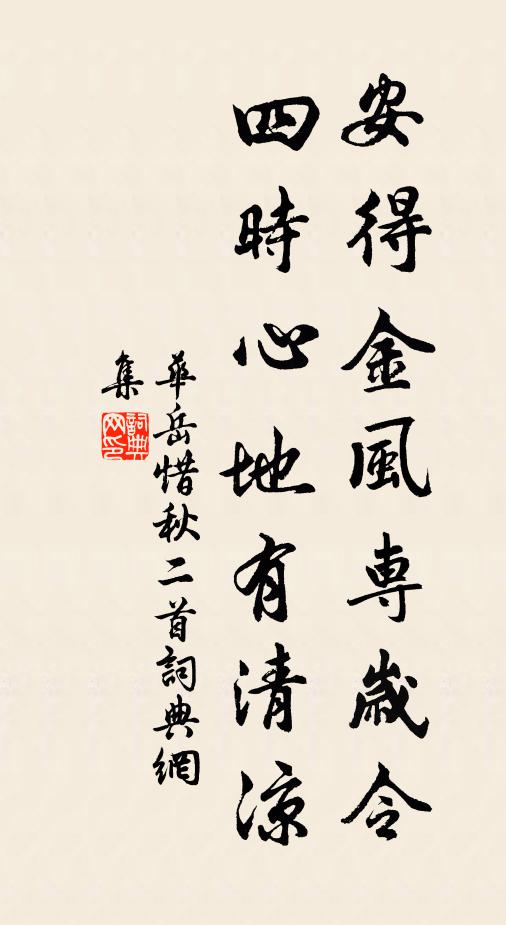 安得金風専歲令
四時心地有清涼
華岳惜秋二首詞典網
集
詞典
网印